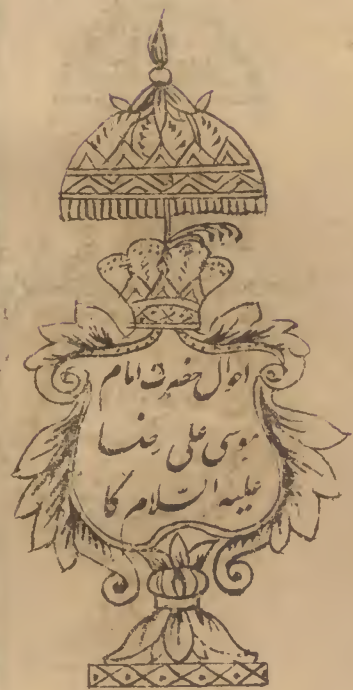 احوال حضرت امام
موسی علی رضا
علیه السّلام کا